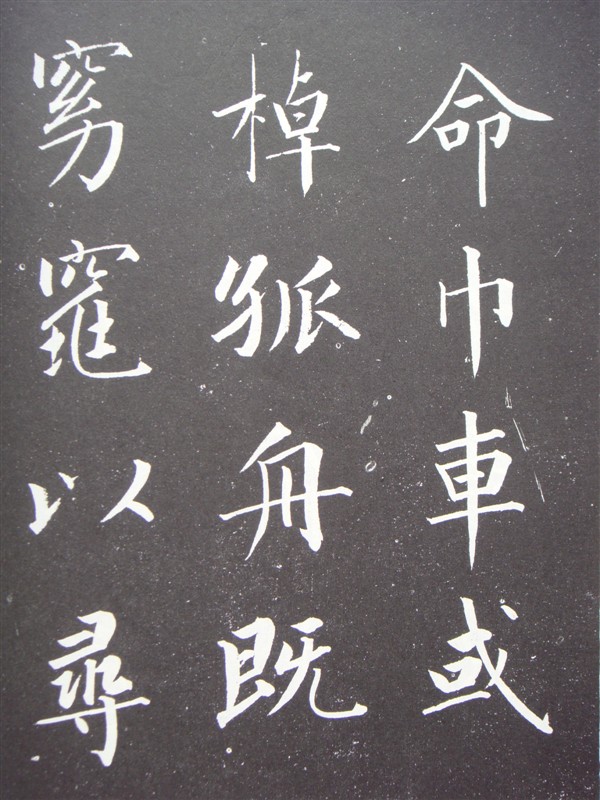 命巾車或
棹孤舟既
窈窕以尋